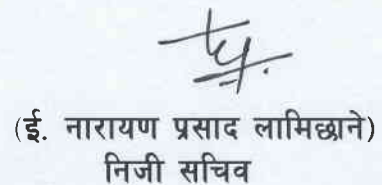 (ई. नारायण प्रसाद लामिछाने)
निजी सचिव